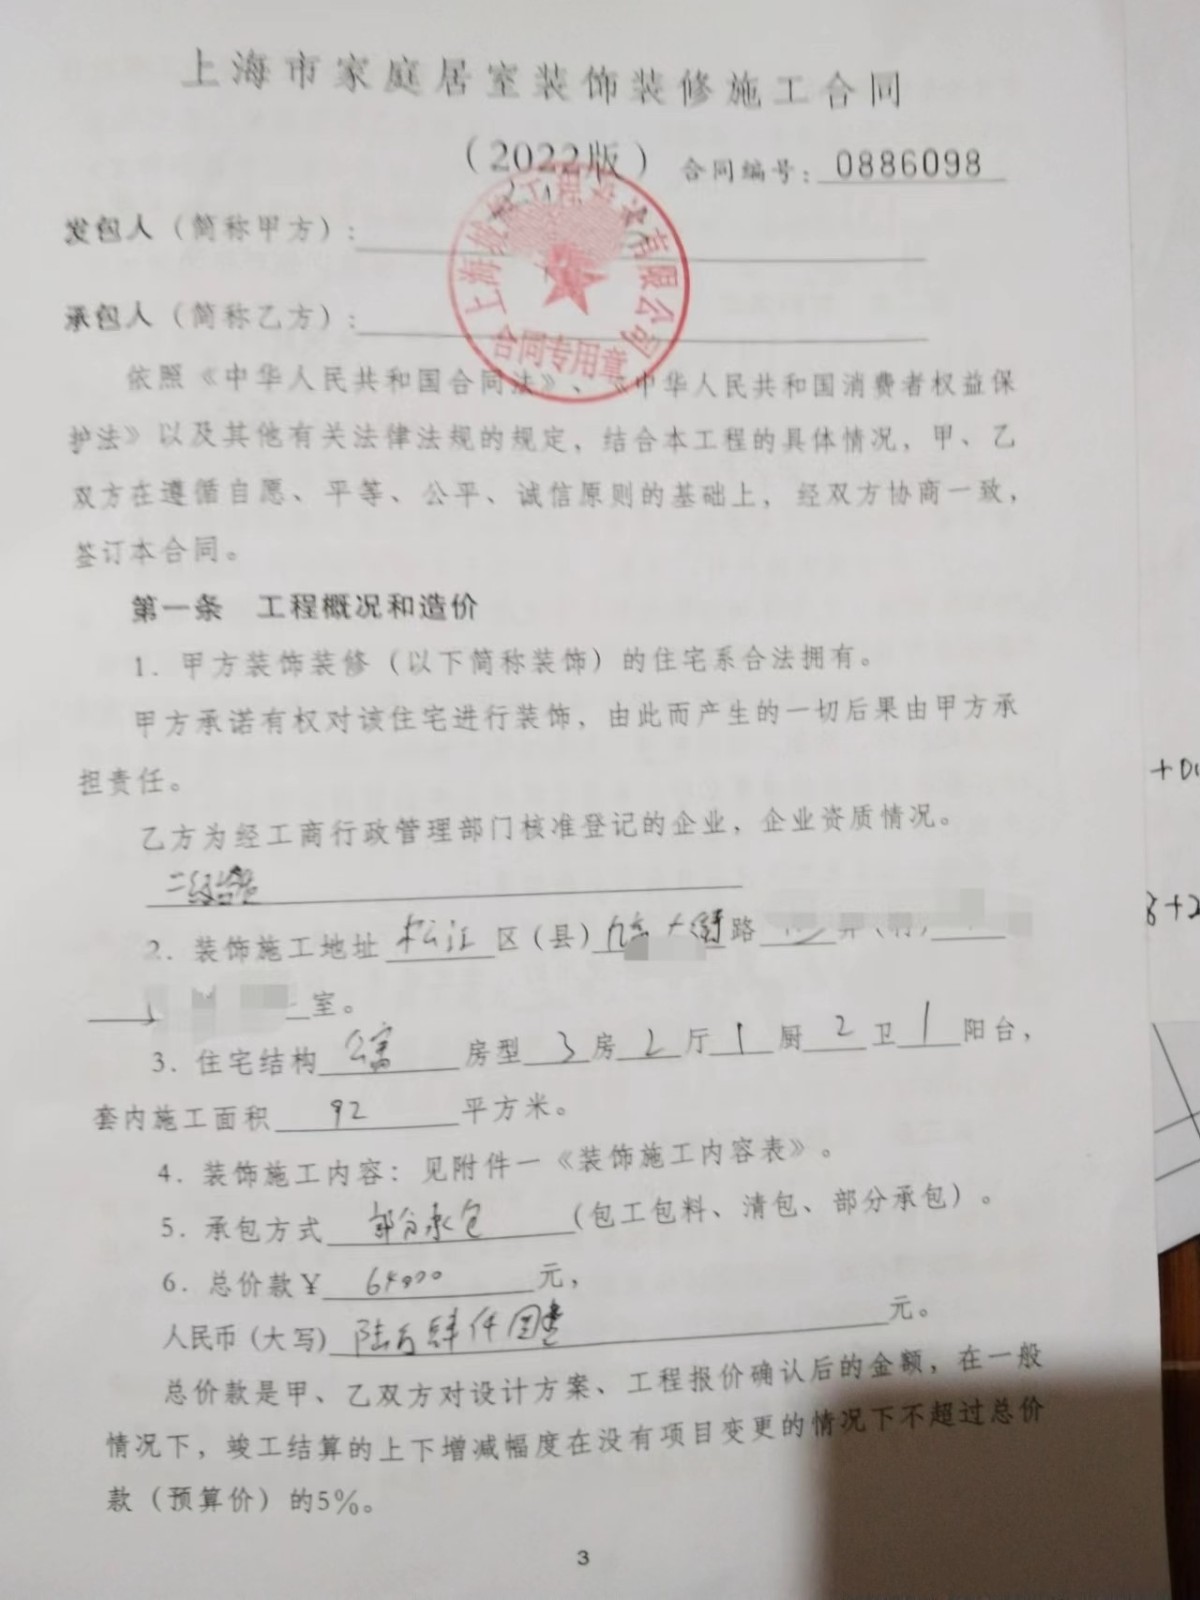 上海市家庭居室装饰装修施工合同
（2022版） 合同编号：0886098
发包人（简称甲方）：
承包人（简称乙方）：
上海 工程 有限公司
合同专用章
依照《中华人民共和国合同法》、《中华人民共和国消费者权益保
护法》以及其他有关法律法规的规定，结合本工程的具体情况，甲、乙
双方在遵循自愿、平等、公平、诚信原则的基础上，经双方协商一致，
签订本合同。
第一条 工程概况和造价
1. 甲方装饰装修（以下简称装饰）的住宅系合法拥有。
甲方承诺有权对该住宅进行装饰，由此而产生的一切后果由甲方承
担责任。
乙方为经工商行政管理部门核准登记的企业，企业资质情况。
二级
2. 装饰施工地址 松江 区（县） 路
室。
3. 住宅结构 房型 3 房 2 厅 1 厨 2 卫 1 阳台，
套内施工面积 92 平方米。
4. 装饰施工内容：见附件一《装饰施工内容表》。
5. 承包方式 部分承包 （包工包料、清包、部分承包）。
6. 总价款￥ 64000 元，
人民币（大写） 陆万肆仟圆整 元。
总价款是甲、乙双方对设计方案、工程报价确认后的金额，在一般
情况下，竣工结算的上下增减幅度在没有项目变更的情况下不超过总价
款（预算价）的5%。
3